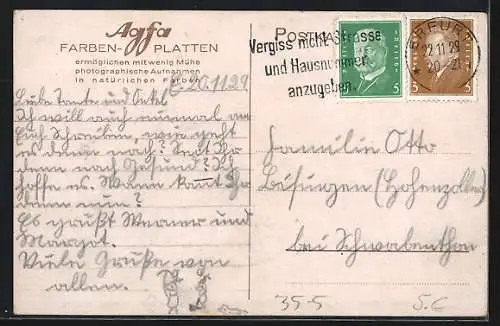 Agfa
FARBEN-PLATTEN
ermöglichen mit wenig Mühe
photographische Aufnahmen
in natürlichen Farben
E. 20.11.29
Liebe Tante und Onkel
Ich will auch niemal an
Euch Schreiben, wie geht
es denn nach? Seit Ihr
denn nach Gesund? Ich
hoffe es. Wann kamt Ihr
denn nun?
Es grüßt Werner und
Margot.
Viele Grüße von
allen.
POSTKA
Vergiss nicht Strasse
und Hausnummer
anzugeben.
ERFURT
22.11.29
20-21
5
3
Familie Otto
Bisingen (Hohenzoller)
bei
35-5
S.C